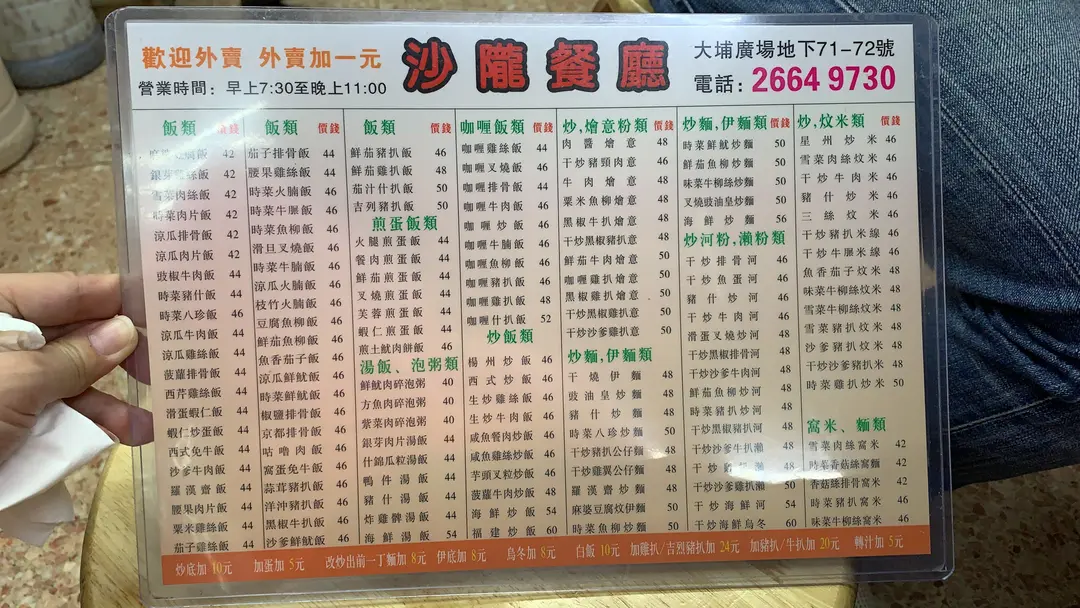 歡迎外賣 外賣加一元
營業時間：早上7:30至晚上11:00
沙隴餐廳
大埔廣場地下71-72號
電話：2664 9730
飯類 價錢
飯 42
銀芽雞絲飯 42
雪菜肉絲飯 42
時菜肉片飯 42
涼瓜排骨飯 42
涼瓜肉片飯 42
豉椒牛肉飯 44
時菜豬什飯 44
時菜八珍飯 46
涼瓜牛肉飯 44
涼瓜雞絲飯 44
菠蘿排骨飯 44
西芹雞絲飯 44
滑蛋蝦仁飯 44
蝦仁炒蛋飯 44
西式免牛飯 44
沙爹牛肉飯 44
羅漢齋飯 44
腰果肉片飯 44
粟米雞絲飯 44
茄子雞絲飯 44
飯類 價錢
茄子排骨飯 44
腰果雞絲飯 44
時菜火腩飯 46
時菜牛脹飯 46
時菜魚柳飯 46
滑旦叉燒飯 46
時菜牛腩飯 46
涼瓜火腩飯 46
枝竹火腩飯 46
豆腐魚柳飯 46
鮮茄魚柳飯 46
魚香茄子飯 46
涼瓜鮮魷飯 46
時菜鮮魷飯 46
椒鹽排骨飯 46
京都排骨飯 46
咕嚕肉飯 46
窩蛋免牛飯 46
蒜茸豬扒飯 46
洋沖豬扒飯 46
黑椒牛扒飯 46
沙爹鮮魷飯 46
飯類 價錢
鮮茄豬扒飯 48
鮮茄雞扒飯 48
茄汁什扒飯 50
吉列豬扒飯 50
煎蛋飯類
火腿煎蛋飯 44
餐肉煎蛋飯 44
鮮茄煎蛋飯 44
叉燒煎蛋飯 44
芙蓉煎蛋飯 44
蝦仁煎蛋飯 44
煎土魷肉餅飯 46
湯飯、泡粥類
鮮魷肉碎泡粥 40
方魚肉碎泡粥 40
紫菜肉碎泡粥 40
銀芽肉片湯飯 44
什錦瓜粒湯飯 44
鴨件湯飯 44
豬什湯飯 44
炸雞髀湯飯 44
海鮮湯飯 54
咖喱飯類 價錢
咖喱雞絲飯 44
咖喱叉燒飯 46
咖喱排骨飯 44
咖喱牛肉飯 46
咖喱炒飯 46
咖喱牛腩飯 46
咖喱魚柳飯 46
咖喱豬扒飯 46
咖喱雞扒飯 48
咖喱什扒飯 52
炒飯類
楊州炒飯 46
西式炒飯 46
生炒雞絲飯 46
生炒牛肉飯 46
咸魚餐肉炒飯 46
咸魚雞絲炒飯 46
芋頭叉粒炒飯 46
菠蘿牛肉炒飯 48
海鮮炒飯 54
福建炒飯 60
炒,燴意粉類 價錢
肉醬燴意 48
干炒豬頸肉意 48
牛肉燴意 48
粟米魚柳燴意 48
黑椒牛扒燴意 48
干炒黑椒豬扒意 48
鮮茄牛肉燴意 50
咖喱雞扒燴意 50
黑椒雞扒燴意 50
干炒黑椒雞扒意 50
干炒沙爹雞扒意 50
炒麵,伊麵類
干燒伊麵 48
豉油皇炒麵 48
豬什炒麵 48
時菜八珍炒麵 50
干炒豬扒公仔麵 48
干炒雞翼公仔麵 48
羅漢齋炒麵 48
麻婆豆腐炆伊麵 50
時菜魚柳炒麵 50
炒麵,伊麵類 價錢
時菜鮮魷炒麵 50
鮮茄魚柳炒麵 50
味菜牛柳絲炒麵 50
叉燒豉油皇炒麵 50
海鮮炒麵 56
炒河粉,瀨粉類
干炒排骨河 46
干炒魚蛋河 46
豬什炒河 46
干炒牛肉河 46
滑蛋叉燒炒河 48
干炒黑椒排骨河 48
鮮茄魚柳炒河 48
時菜豬扒炒河 48
干炒黑椒豬扒河 48
干炒沙爹牛扒瀨 48
瀨 48
干炒沙爹雞扒瀨 50
干炒海鮮河 54
干炒海鮮烏冬 60
炒,炆米類 價錢
星州炒米 46
雪菜肉絲炆米 46
干炒牛肉米 46
豬什炒米 46
三絲炆米 46
干炒豬扒米線 46
干炒牛脹米線 46
魚香茄子炆米 48
味菜牛柳絲炆米 48
雪菜牛柳絲炆米 48
雪菜豬扒炆米 48
沙爹豬扒炆米 48
干炒沙爹豬扒米 48
時菜雞扒炒米 50
窩米、麵類
雪菜肉絲窩米 42
時菜香菇絲窩麵 42
香菇絲排骨窩米 44
時菜豬扒窩米 46
味菜牛柳絲窩米 46
炒底加 10元 加蛋加 5元 改炒出前一丁麵加 8元 伊底加 8元 烏冬加 8元 白飯 10元 加雞扒/吉烈豬扒加 24元 加豬扒/牛扒加 20元 轉汁加 5元